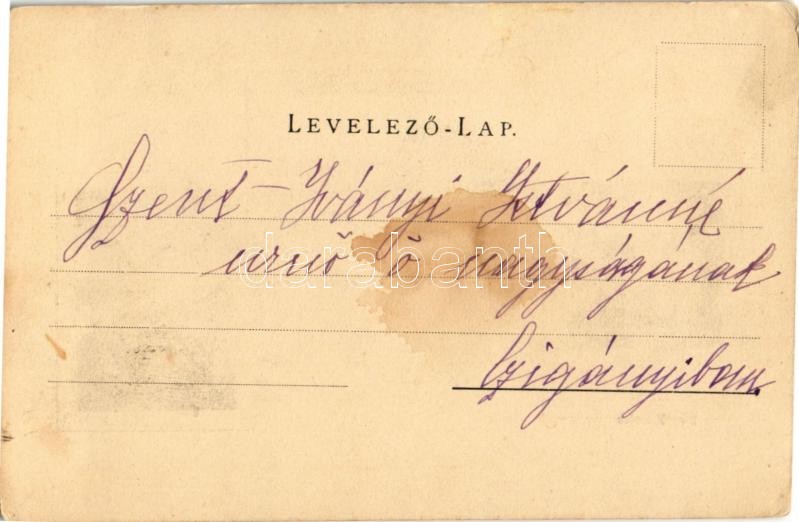 LEVELEZŐ-LAP.
Szent-Iványi Istvánné
urnő ő nagyságának
Czigányiban
darabanth